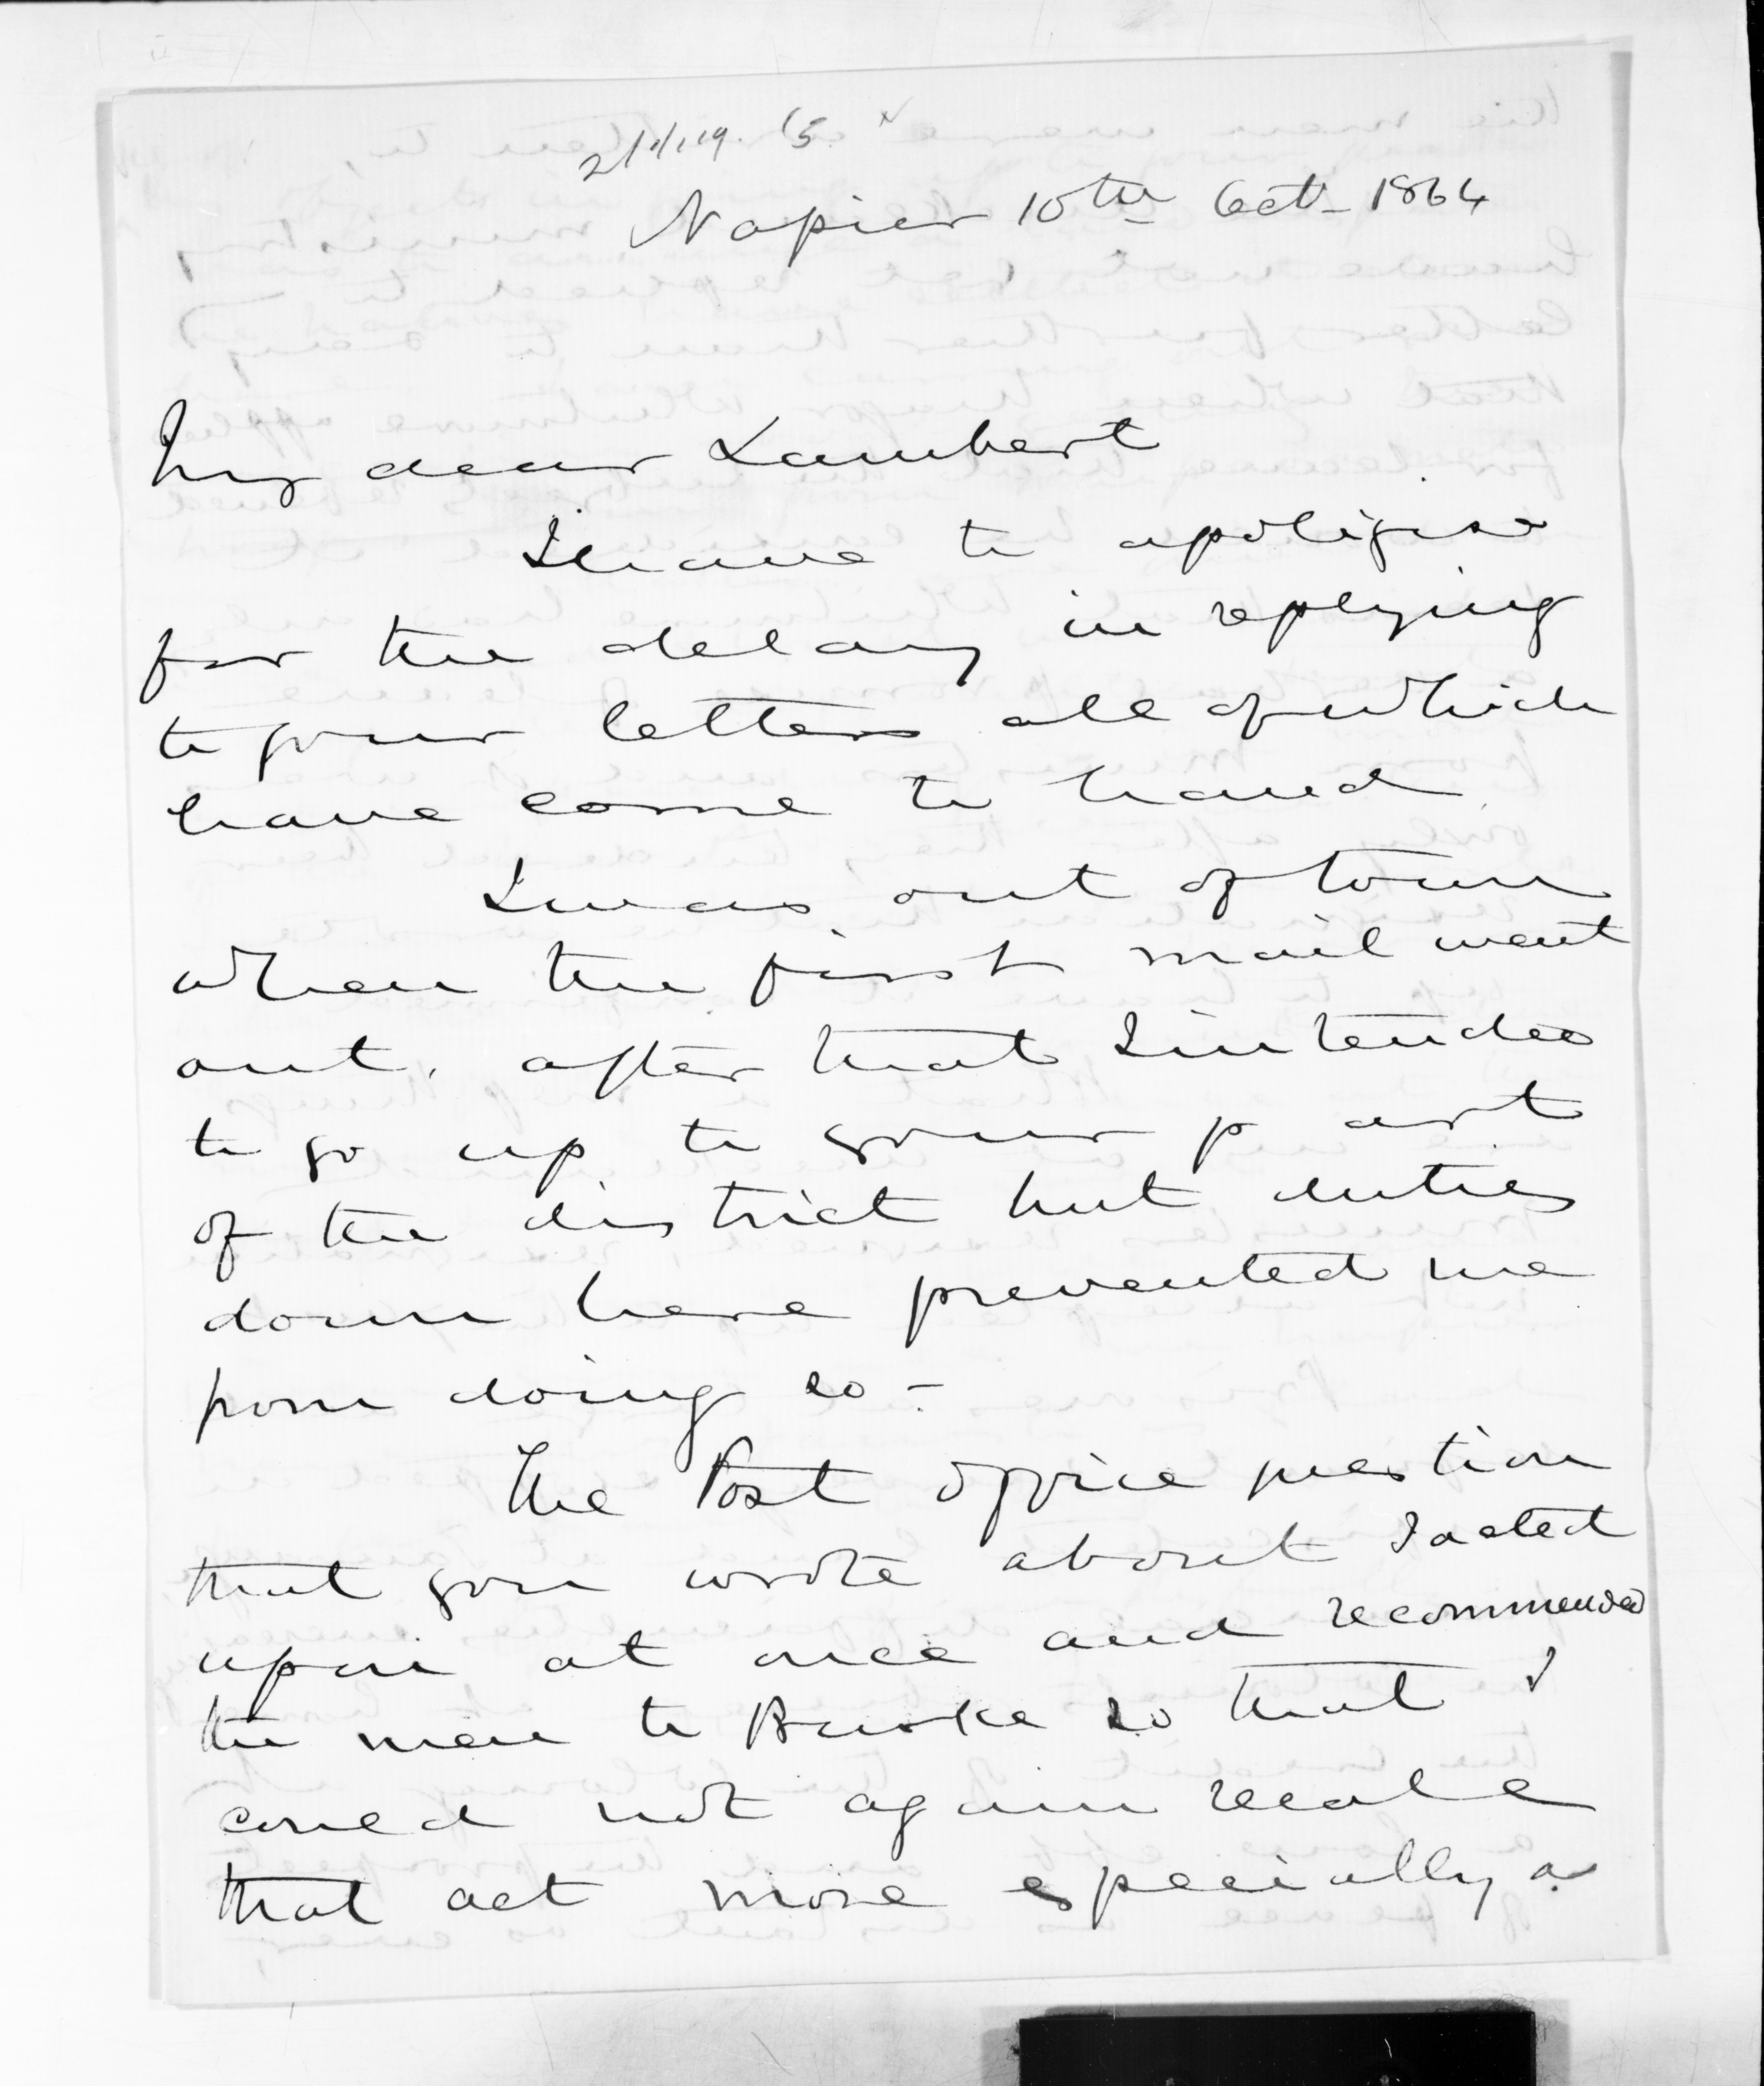 Napier 10th Oct 1864
My dear Lambert
I have to apoligise
for the delay in replying
to your letters all of which
have come to hand
I was out of town
when the first mail went
out, after that I intended
to go up to your part
of the district but duties
down here prevented me
from doing so -
The Post office question
that you wrote about I acted
upon at once and recommended
the man to Burke so that I
could not again
that act more especially as